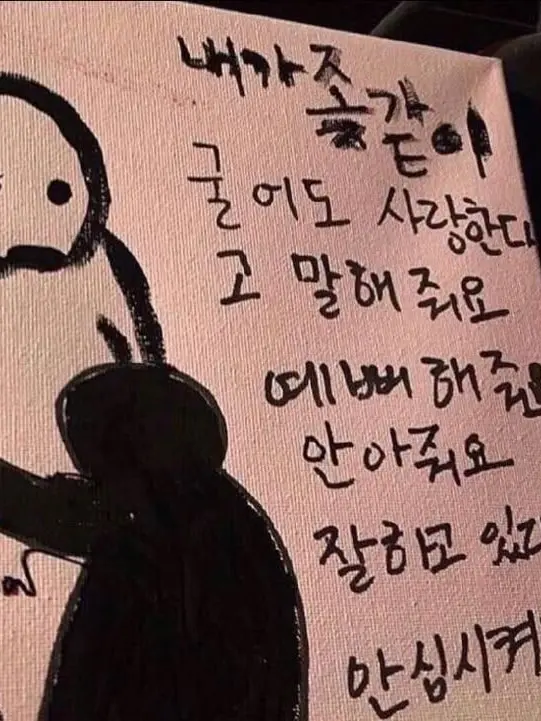 내가 좆같이
굴어도 사랑한다
고 말해줘요
예뻐해줘요
안아줘요
잘하고 있다
안심시켜